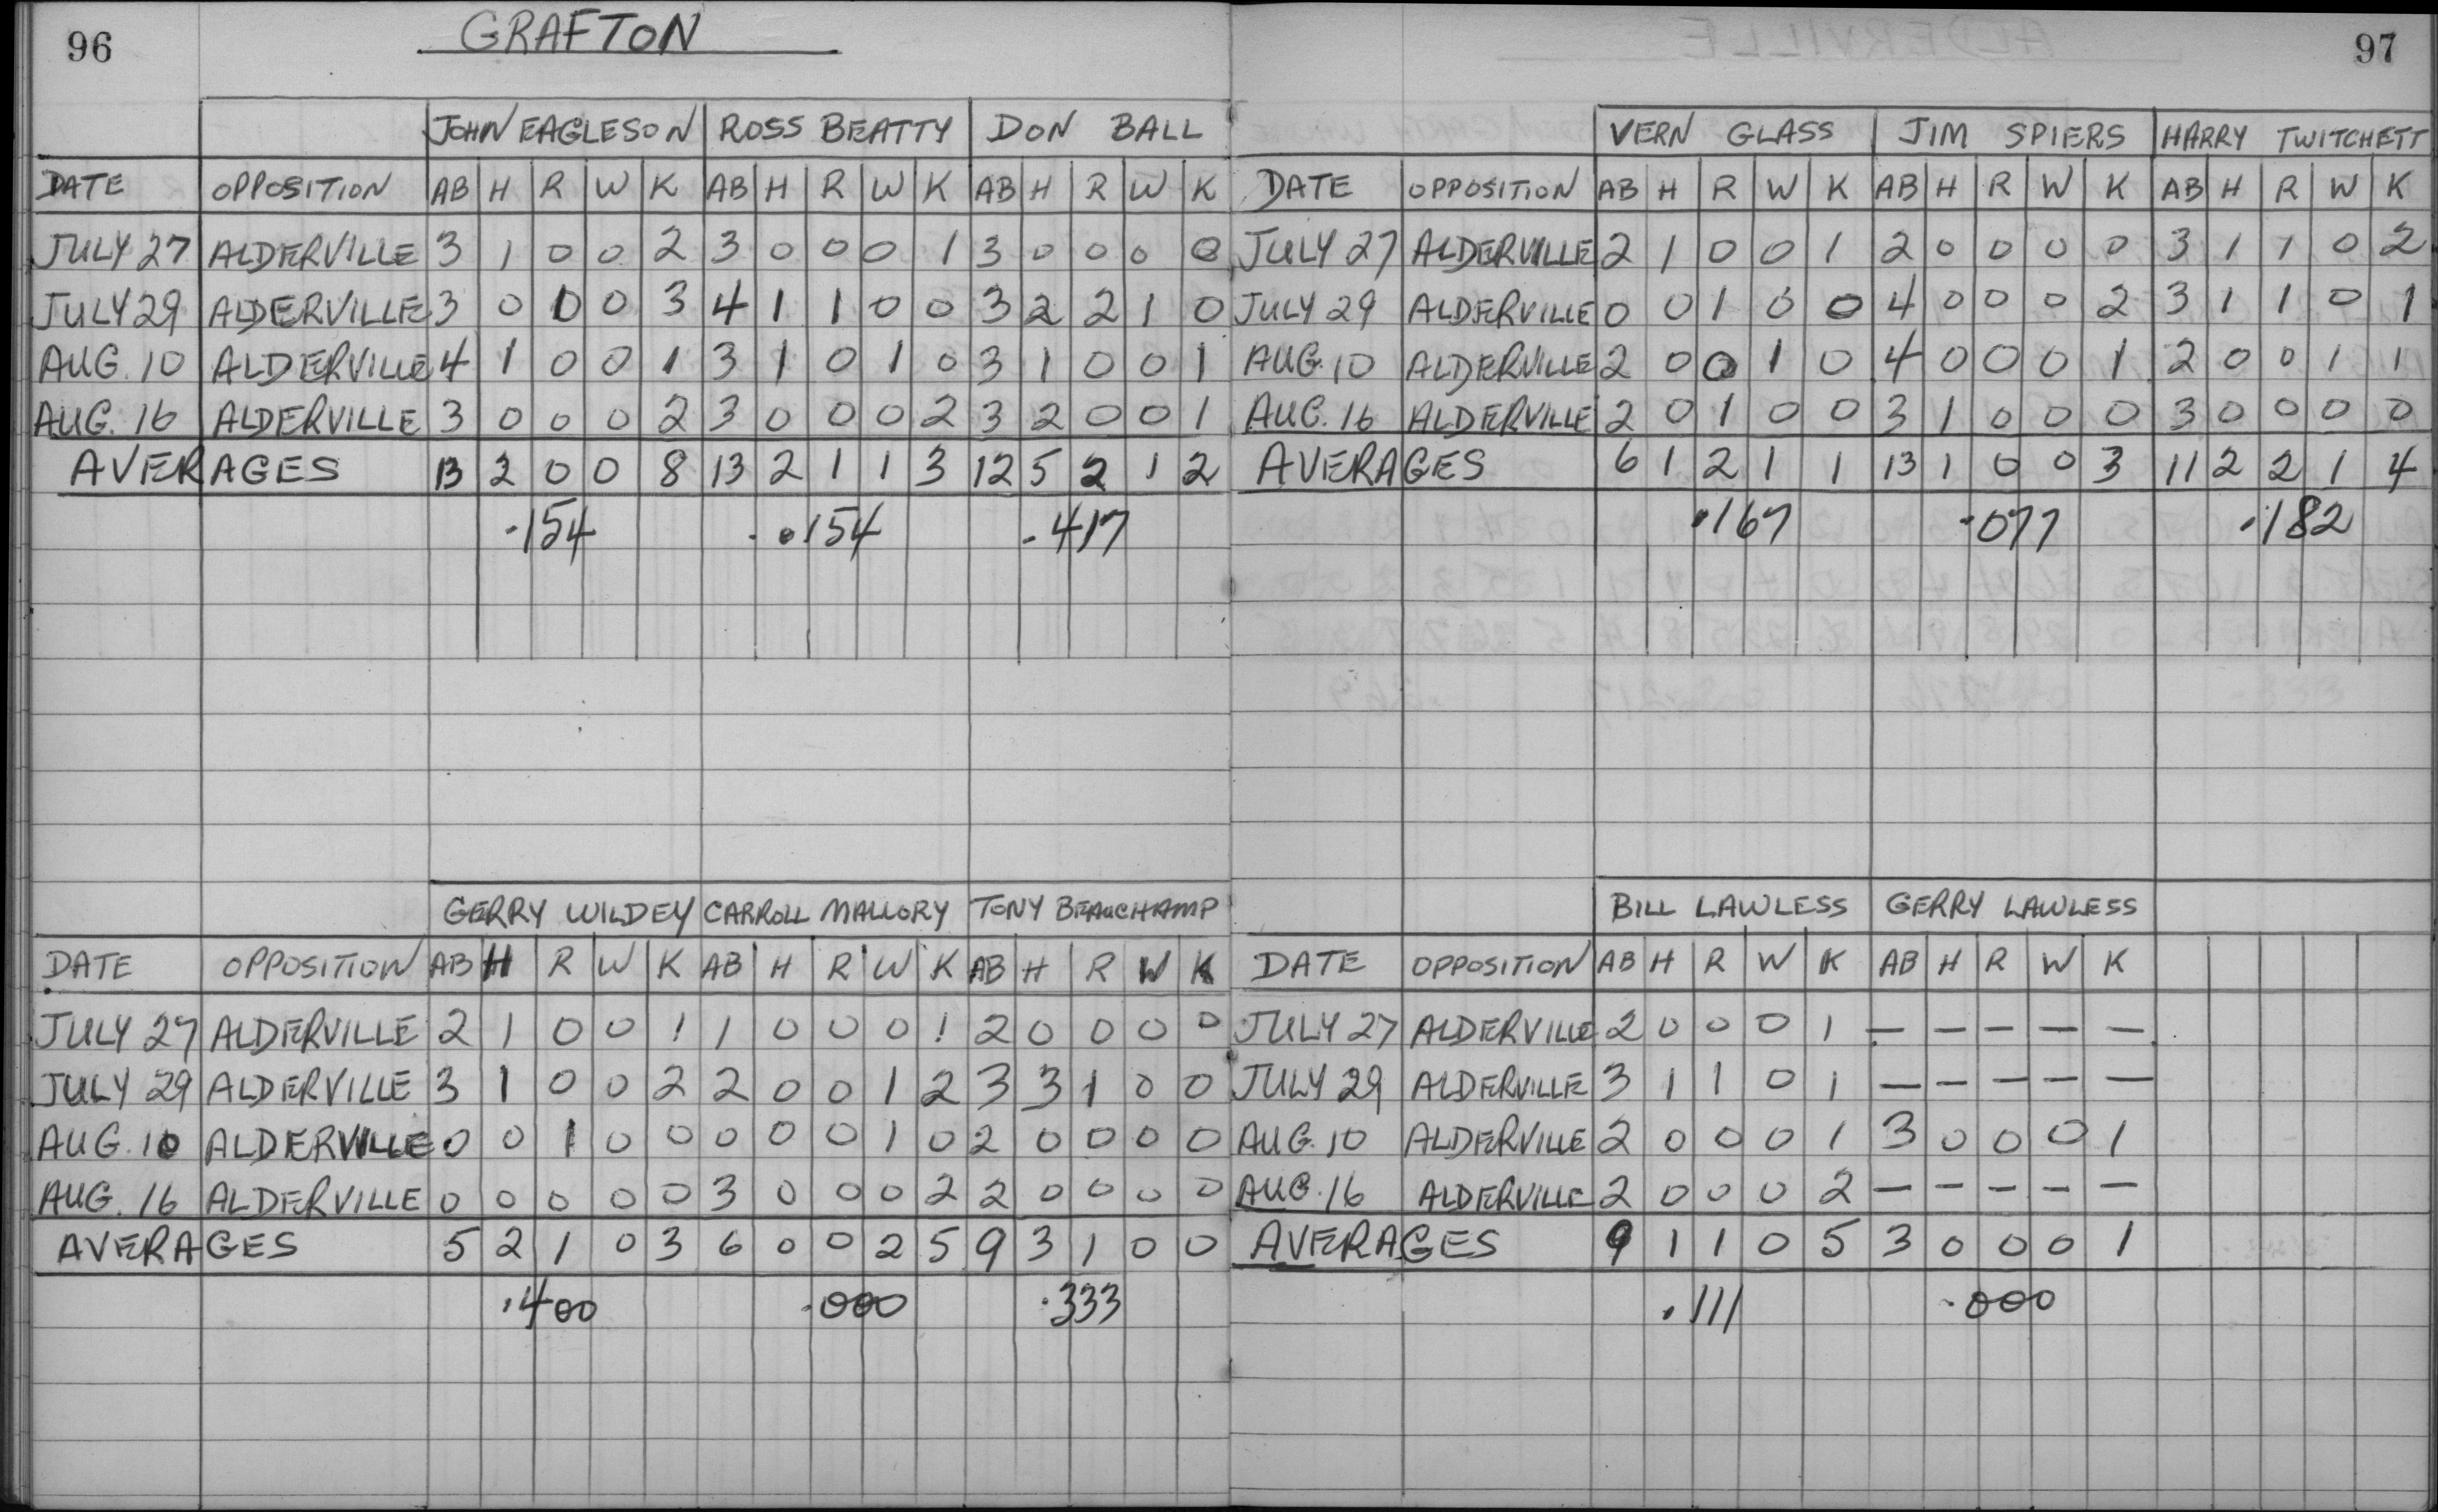 96
GRAFTON
JOHN EAGLESON ROSS BEATTY DON BALL
DATE OPPOSITION AB H R W K AB H R W K AB H R W K
JULY 27 ALDERVILLE 3 1 0 0 2 3 0 0 0 1 3 0 0 0 0
JULY 29 ALDERVILLE 3 0 0 0 3 4 1 1 0 0 3 2 2 1 0
AUG. 10 ALDERVILLE 4 1 0 0 1 3 1 0 1 0 3 1 0 0 1
AUG. 16 ALDERVILLE 3 0 0 0 2 3 0 0 0 2 3 2 0 0 1
AVERAGES 13 2 0 0 8 13 2 1 1 3 12 5 2 1 2
.154 .154 .417
GERRY WILDEY CARROLL MALLORY TONY BEAUCHAMP
DATE OPPOSITION AB H R W K AB H R W K AB H R W K
JULY 27 ALDERVILLE 2 1 0 0 1 1 0 0 0 1 2 0 0 0 0
JULY 29 ALDERVILLE 3 1 0 0 2 2 0 0 1 2 3 3 1 0 0
AUG. 10 ALDERVILLE 0 0 1 0 0 0 0 0 1 0 2 0 0 0 0
AUG. 16 ALDERVILLE 0 0 0 0 0 3 0 0 0 2 2 0 0 0 0
AVERAGES 5 2 1 0 3 6 0 0 2 5 9 3 1 0 0
.400 .000 .333
97
VERN GLASS JIM SPIERS HARRY TWITCHETT
DATE OPPOSITION AB H R W K AB H R W K AB H R W K
JULY 27 ALDERVILLE 2 1 0 0 1 2 0 0 0 0 3 1 1 0 2
JULY 29 ALDERVILLE 0 0 1 0 0 4 0 0 0 2 3 1 1 0 1
AUG. 10 ALDERVILLE 2 0 0 1 0 4 0 0 0 1 2 0 0 1 1
AUG. 16 ALDERVILLE 2 0 1 0 0 3 1 0 0 0 3 0 0 0 0
AVERAGES 6 1 2 1 1 13 1 0 0 3 11 2 2 1 4
.167 .077 .182
BILL LAWLESS GERRY LAWLESS
DATE OPPOSITION AB H R W K AB H R W K
JULY 27 ALDERVILLE 2 0 0 0 1 — — — — —
JULY 29 ALDERVILLE 3 1 1 0 1 — — — — —
AUG. 10 ALDERVILLE 2 0 0 0 1 3 0 0 0 1
AUG. 16 ALDERVILLE 2 0 0 0 2 — — — — —
AVERAGES 9 1 1 0 5 3 0 0 0 1
.111 .000